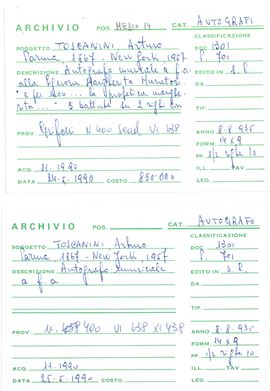 ARCHIVIO POS MEDIO 14 CAT. AUTOGRAFI
CLASSIFICAZIONE
SOGGETTO TOSCANINI, Arturo DOC 1301
Parma 1867 - New York 1957 P. 701
DESCRIZIONE Autografo musicale a f.a EDITO IN S.l
alla Margherita DATA
"e fer son... la profetica marghe-
TIP.
rita..." 5 battute in 2 righi
PROV. N 400 VI 638 ANNO 8.8.935
FORM 14x9
PP. 1/2 righe 10
ACQ. 11.1990 ILL. TAV.
DATA 24.5.1990 COSTO 850.000 LEG.
ARCHIVIO POS. CAT. AUTOGRAFO
CLASSIFICAZIONE
SOGGETTO TOSCANINI, Arturo DOC 1301
Parma 1867 - New York, 1957 P. 701
DESCRIZIONE Autografo musicale EDITO IN S.l
a f.a DATA
TIP.
PROV. 11. 400 VI 638 XI 438 ANNO 8.8.935
FORM 14x9
PP. 1/2 righe 10
ACQ. 11.1990 ILL. TAV.
DATA 25.5.1990 COSTO LEG.